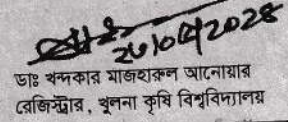 ডাঃ খন্দকার মাজহারুল আনোয়ার
রেজিস্ট্রার, খুলনা কৃষি বিশ্ববিদ্যালয়